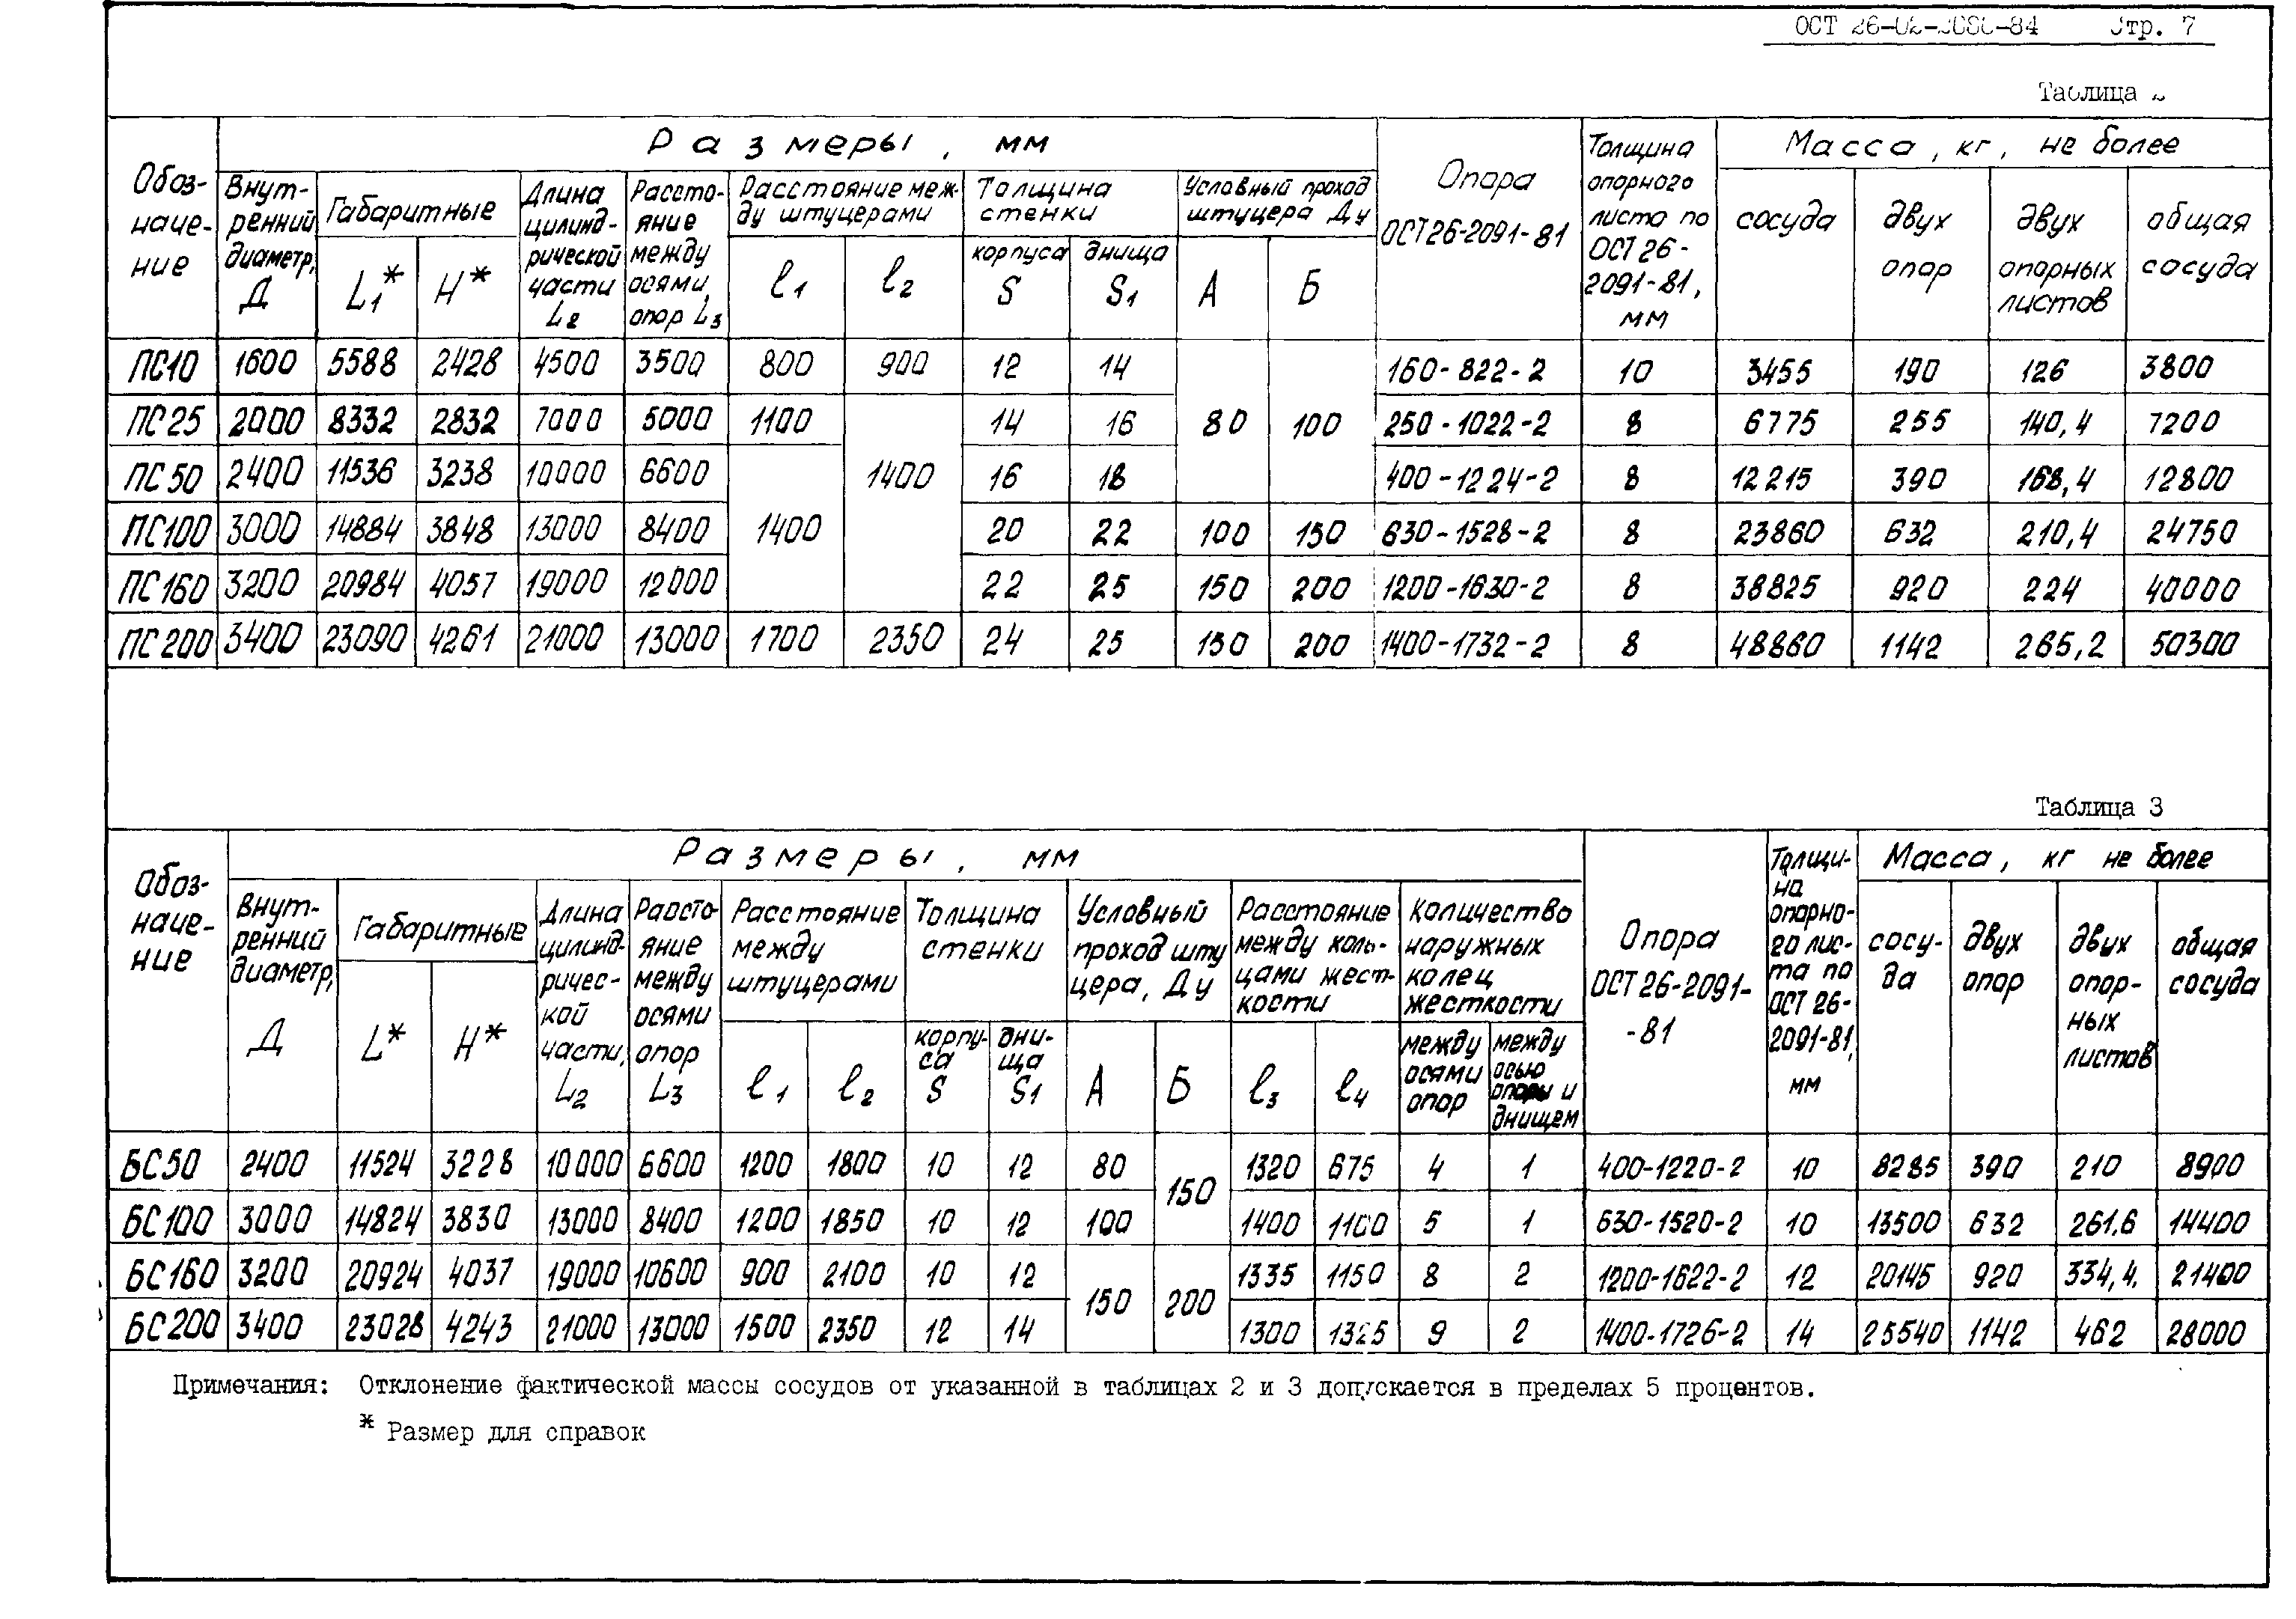 ОСТ Стр. 7
Таблица
Обоз-
наче-
ние
Размеры, мм
Внут-
ренний
диаметр,
Д
Габаритные
L1*
H*
Длина
цилинд-
рической
части
L2
Рассто-
яние
между
осями
опор L3
Расстояние меж-
ду штуцерами
l1
l2
Толщина
стенки
корпуса
S
днища
S1
Условный проход
штуцера Ду
А
Б
Опора
ОСТ26-2091-81
Толщина
опорного
листа по
ОСТ 26-
2091-81,
мм
Масса, кг, не более
сосуда
двух
опор
двух
опорных
листов
общая
сосуда
ПС10 1600 5588 2428 4500 3500 800 900 12 14 160-822-2 10 3455 190 126 3800
ПС25 2000 8332 2832 7000 5000 1100 14 16 80 100 250-1022-2 8 6775 255 140,4 7200
ПС50 2400 11536 3238 10000 6600 1400 16 18 400-1224-2 8 12215 390 168,4 12800
ПС100 3000 14884 3848 13000 8400 1400 20 22 100 150 630-1528-2 8 23860 632 210,4 24750
ПС160 3200 20984 4057 19000 12000 22 25 150 200 1200-1630-2 8 38825 920 224 40000
ПС200 3400 23090 4261 21000 13000 1700 2350 24 25 150 200 1400-1732-2 8 48860 1142 265,2 50300
Таблица 3
Обоз-
наче-
ние
Размеры, мм
Внут-
ренний
диаметр,
Д
Габаритные
L*
H*
Длина
цилинд-
ричес-
кой
части,
L2
Рассто-
яние
между
осями
опор
L3
Расстояние
между
штуцерами
l1
l2
Толщина
стенки
корпу-
са
S
дни-
ща
S1
Условный
проход шту
цера, Ду
А
Б
Расстояние
между коль-
цами жест-
кости
l3
l4
Количество
наружных
колец
жесткости
между
осями
опор
между
осью
опоры и
днищем
Опора
ОСТ 26-2091-
-81
Толщи-
на
опорно-
го лис-
та по
ОСТ 26-
2091-81,
мм
Масса, кг не более
сосу-
да
двух
опор
двух
опор-
ных
листов
общая
сосуда
БС50 2400 11524 3228 10000 6600 1200 1800 10 12 80 150 1320 675 4 1 400-1220-2 10 8285 390 210 8900
БС100 3000 14824 3830 13000 8400 1200 1850 10 12 100 1400 1100 5 1 630-1520-2 10 13500 632 261,6 14400
БС160 3200 20924 4037 19000 10600 900 2100 10 12 150 200 1335 1150 8 2 1200-1622-2 12 20145 920 334,4. 21400
БС200 3400 23028 4243 21000 13000 1500 2350 12 14 1300 1325 9 2 1400-1726-2 14 25540 1142 462 28000
Примечания: Отклонение фактической массы сосудов от указанной в таблицах 2 и 3 допускается в пределах 5 процентов.
* Размер для справок